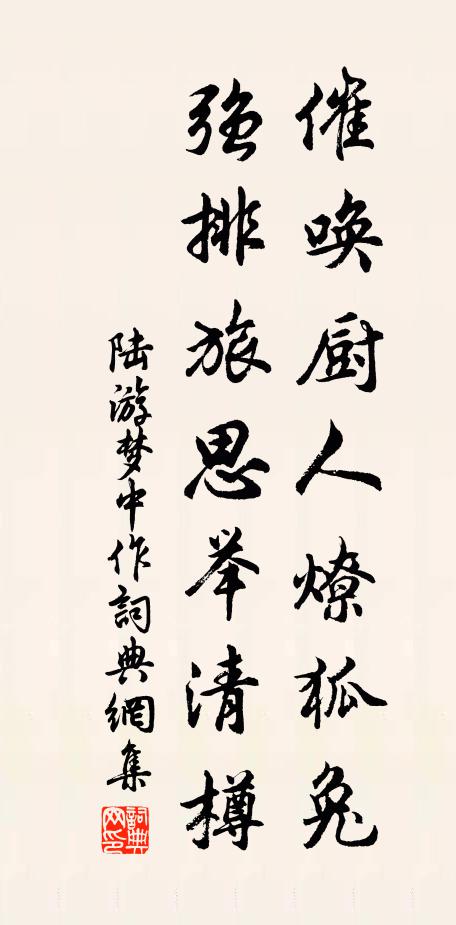 催唤厨人燎狐兔
强排旅思举清樽
陆游梦中作詞典網集
詞典网印